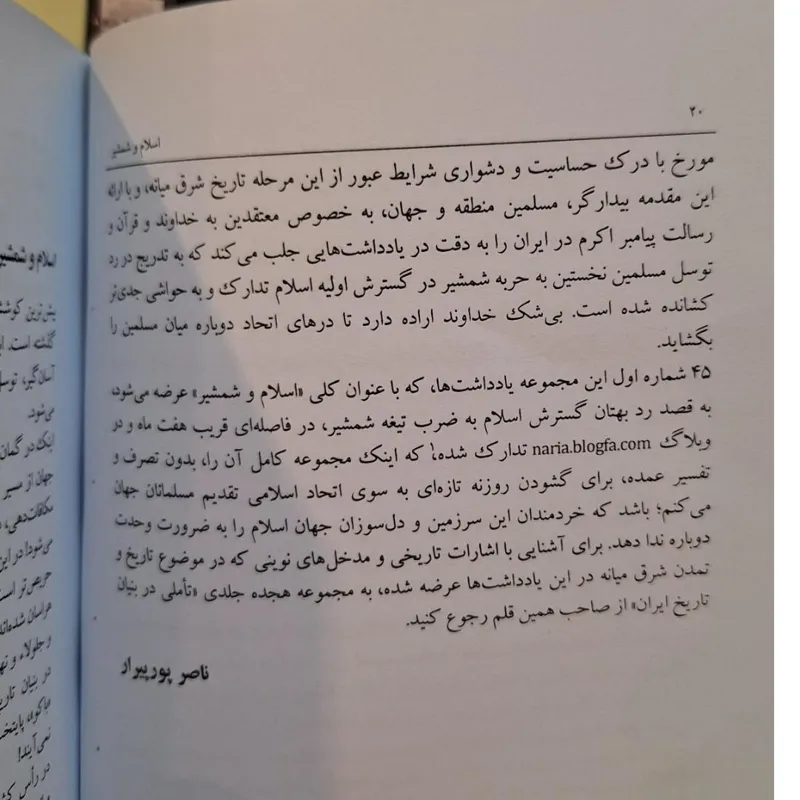 ۲۰
اسلام و شمشیر
مورخ با درک حساسیت و دشواری شرایط عبور از این مرحله تاریخ شرق میانه، و با ارائه
این مقدمه بیدارگر، مسلمین منطقه و جهان، به خصوص معتقدین به خداوند و قرآن و
رسالت پیامبر اکرم در ایران را به دقت در یادداشت‌هایی جلب می‌کند که به تدریج در رد
توسل مسلمین نخستین به حربه شمشیر در گسترش اولیه اسلام تدارک و به حواشی جدی‌تر
کشانده شده است. بی‌شک خداوند اراده دارد تا درهای اتحاد دوباره میان مسلمین را
بگشاید.
۴۵ شماره اول این مجموعه یادداشت‌ها، که با عنوان کلی «اسلام و شمشیر» عرضه می‌شود،
به قصد رد بهتان گسترش اسلام به ضرب تیغه شمشیر، در فاصله‌ای قریب هفت ماه و در
وبلاگ naria.blogfa.com تدارک شده! که اینک مجموعه کامل آن را، بدون تصرف و
تفسیر عمده، برای گشودن روزنه تازه‌ای به سوی اتحاد اسلامی تقدیم مسلمانان جهان
می‌کنم؛ باشد که خردمندان این سرزمین و دل‌سوزان جهان اسلام را به ضرورت وحدت
دوباره ندا دهد. برای آشنایی با اشارات تاریخی و مدخل‌های نوینی که در موضوع تاریخ و
تمدن شرق میانه در این یادداشت‌ها عرضه شده، به مجموعه هجده جلدی «تأملی در بنیان
تاریخ ایران» از صاحب همین قلم رجوع کنید.
ناصر پورپیرار
اسلام و شمشیر
گذشته است.
آسان‌گیر، توسل
می‌شود.
اینک در گمان
جهان از مسیر
مکافات‌دهی،
می‌شود! در این
حریص‌تر است
هراسان شده‌اند
و جلولاء و
در بنیان
پایتخت
نمی‌آیند!
در رأس